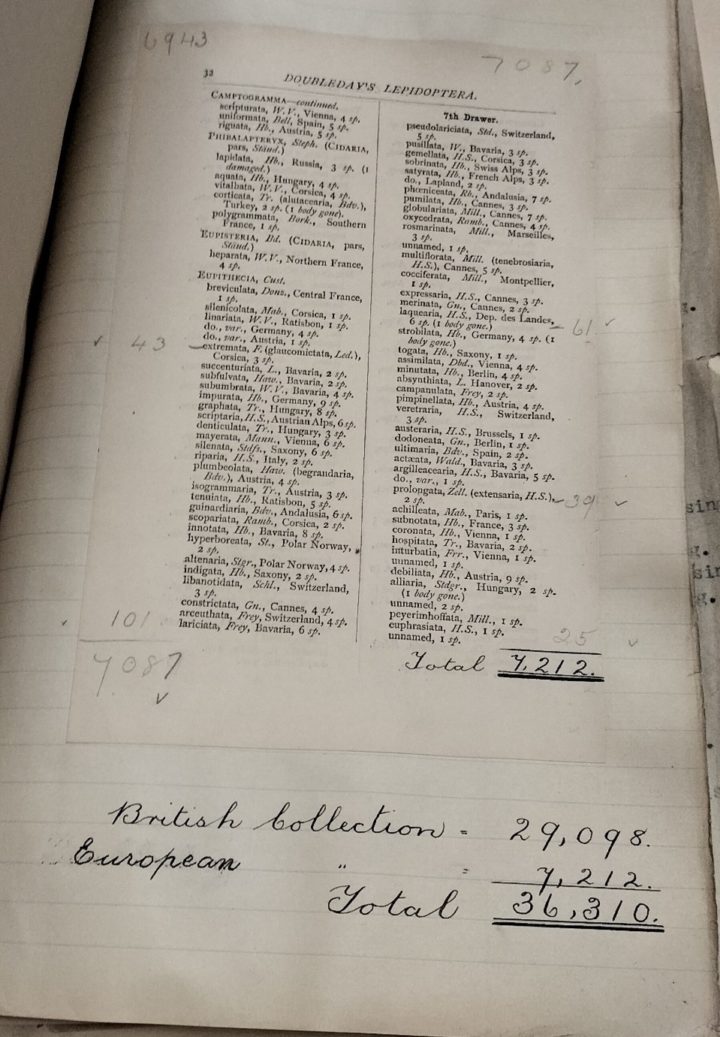 6943
7087,
32
DOUBLEDAY'S LEPIDOPTERA.
CAMPTOGRAMMA—continued.
scripturata, W.V., Vienna, 4 sp.
uniformata, Bell, Spain, 5 sp.
riguata, Hb., Austria, 5 sp.
PHIBALAPTERYX, Steph. (CIDARIA,
pars, Staud.)
lapidata, Hb., Russia, 3 sp. (1
damaged.)
aquata, Hb., Hungary, 4 sp.
vitalbata, W.V., Corsica, 4 sp.
corticata, Tr. (alutacearia, Bdv.),
Turkey, 2 sp. (1 body gone).
polygrammata, Bork., Southern
France, 1 sp.
EUPISTERIA, Bd. (CIDARIA, pars,
Staud.)
heparata, W.V., Northern France,
4 sp.
EUPITHECIA, Curt.
breviculata, Donz., Central France,
1 sp.
silenicolata, Mab., Corsica, 1 sp.
linariata, W.V., Ratisbon, 1 sp.
do., var., Germany, 4 sp.
do., var., Austria, 1 sp.
43
extremata, F. (glaucomictata, Led.),
Corsica, 3 sp.
succenturiata, L., Bavaria, 2 sp.
subfulvata, Haw., Bavaria, 2 sp.
subumbrata, W.V., Bavaria, 4 sp.
impurata, Hb., Germany, 9 sp.
graphata, Tr., Hungary, 8 sp.
scriptaria, H.S., Austrian Alps, 6 sp.
denticulata, Tr., Hungary, 3 sp.
mayerata, Mann., Vienna, 6 sp.
silenata, Stdfs., Saxony, 6 sp.
riparia, H.S., Italy, 2 sp.
plumbeolata, Haw. (begrandaria,
Bdv.), Austria, 4 sp.
isogrammaria, Tr., Austria, 3 sp.
tenuiata, Hb., Ratisbon, 5 sp.
guinardiaria, Bdv., Andalusia, 6 sp.
scopariata, Ramb., Corsica, 2 sp.
innotata, Hb., Bavaria, 8 sp.
hyperboreata, St., Polar Norway,
2 sp.
altenaria, Stgr., Polar Norway, 4 sp.
indigata, Hb., Saxony, 2 sp.
libanotidata, Schl., Switzerland,
3 sp.
constrictata, Gn., Cannes, 4 sp.
arceuthata, Frey, Switzerland, 4 sp.
lariciata, Frey, Bavaria, 6 sp.
101
7087
7th Drawer.
pseudolariciata, Std., Switzerland,
5 sp.
pusillata, W., Bavaria, 3 sp.
gemellata, H.S., Corsica, 3 sp.
sobrinata, Hb., Swiss Alps, 3 sp.
satyrata, Hb., French Alps, 3 sp.
do., Lapland, 2 sp.
phœniceata, Rb., Andalusia, 7 sp.
pumilata, Hb., Cannes, 3 sp.
globulariata, Mill., Cannes, 7 sp.
oxycedrata, Ramb., Cannes, 4 sp.
rosmarinata, Mill., Marseilles,
3 sp.
unnamed, 1 sp.
multiflorata, Mill. (tenebrosiaria,
H.S.), Cannes, 5 sp.
cocciferata, Mill., Montpellier,
1 sp.
expressaria, H.S., Cannes, 3 sp.
merinata, Gn., Cannes, 2 sp.
laquearia, H.S., Dep. des Landes,
6 sp. (1 body gone.)
61
strobilata, Hb., Germany, 4 sp. (1
body gone.)
togata, Hb., Saxony, 1 sp.
assimilata, Dbd., Vienna, 4 sp.
minutata, Hb., Berlin, 4 sp.
absynthiata, L. Hanover, 2 sp.
campanulata, Frey, 2 sp.
pimpinellata, Hb., Austria, 4 sp.
veretraria, H.S., Switzerland,
3 sp.
austeraria, H.S., Brussels, 1 sp.
dodoneata, Gn., Berlin, 1 sp.
ultimaria, Bdv., Spain, 2 sp.
actæata, Wald., Bavaria, 3 sp.
argilleacearia, H.S., Bavaria, 5 sp.
do., var., 1 sp.
prolongata, Zell. (extensaria, H.S.),
2 sp.
39
achilleata, Mab., Paris, 1 sp.
subnotata, Hb., France, 3 sp.
coronata, Hb., Vienna, 1 sp.
hospitata, Tr., Bavaria, 2 sp.
inturbatia, Frr., Vienna, 1 sp.
unnamed, 1 sp.
debiliata, Hb., Austria, 9 sp.
alliaria, Stdgr., Hungary, 2 sp.
(1 body gone.)
unnamed, 2 sp.
peyerimhoffata, Mill., 1 sp.
euphrasiata, H.S., 1 sp.
unnamed, 1 sp.
25
Total 7,212.
British Collection = 29,098.
European „ = 7,212.
Total 36,310.